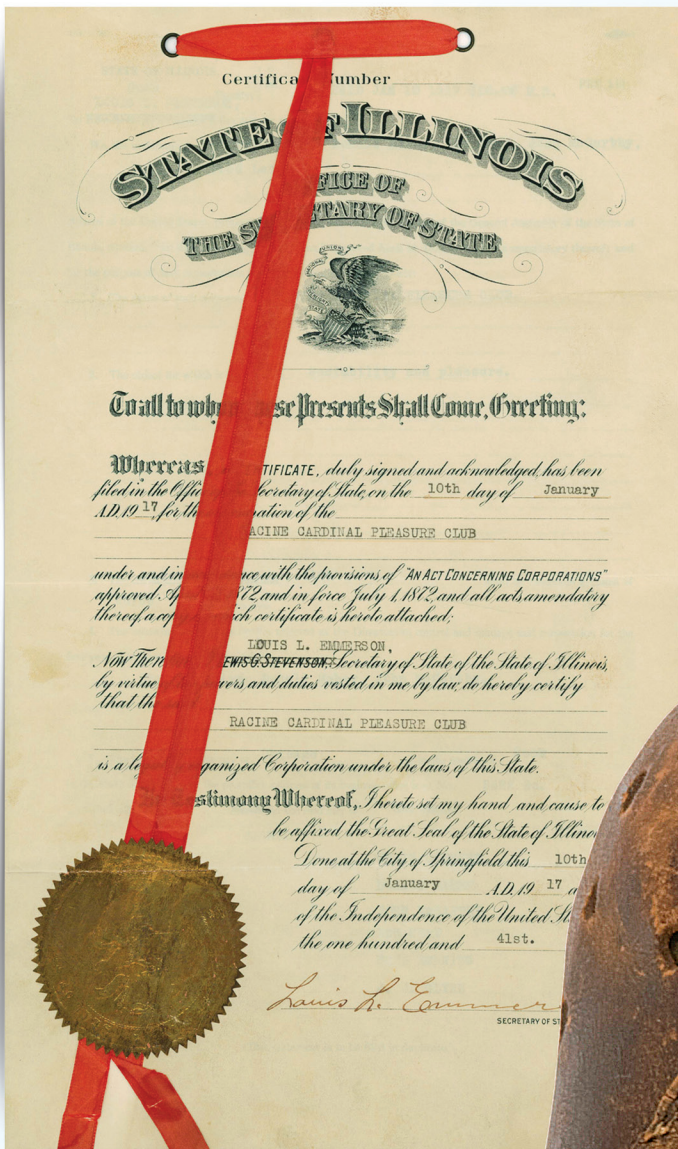 Certifica umber
STATE OF ILLINOIS
FICE OF
THE S TARY OF STATE
To all to who se Presents Shall Come, Greeting:
Whereas TIFICATE, duly signed and acknowledged, has been
filed in the Offic ecretary of State, on the 10th day of January
A.D. 19 17, for th ation of the
ACINE CARDINAL PLEASURE CLUB
under and in ance with the provisions of "AN ACT CONCERNING CORPORATIONS"
approved. Ap 872, and in force July 1, 1872, and all acts amendatory
thereof, a cop ich certificate is hereto attached;
LOUIS L. EMMERSON,
Now There EWIS G. STEVENSON, Secretary of State of the State of Illinois,
by virtue wers and duties vested in me by law, do hereby certify
that th
RACINE CARDINAL PLEASURE CLUB
is a le rganized Corporation under the laws of this State.
stimony Whereof, I hereto set my hand and cause to
be affixed the Great Seal of the State of Illino
Done at the City of Springfield this 10th
day of January A.D. 19 17 a
of the Independence of the United St
the one hundred and 41st.
Louis L. Emmer
SECRETARY OF ST